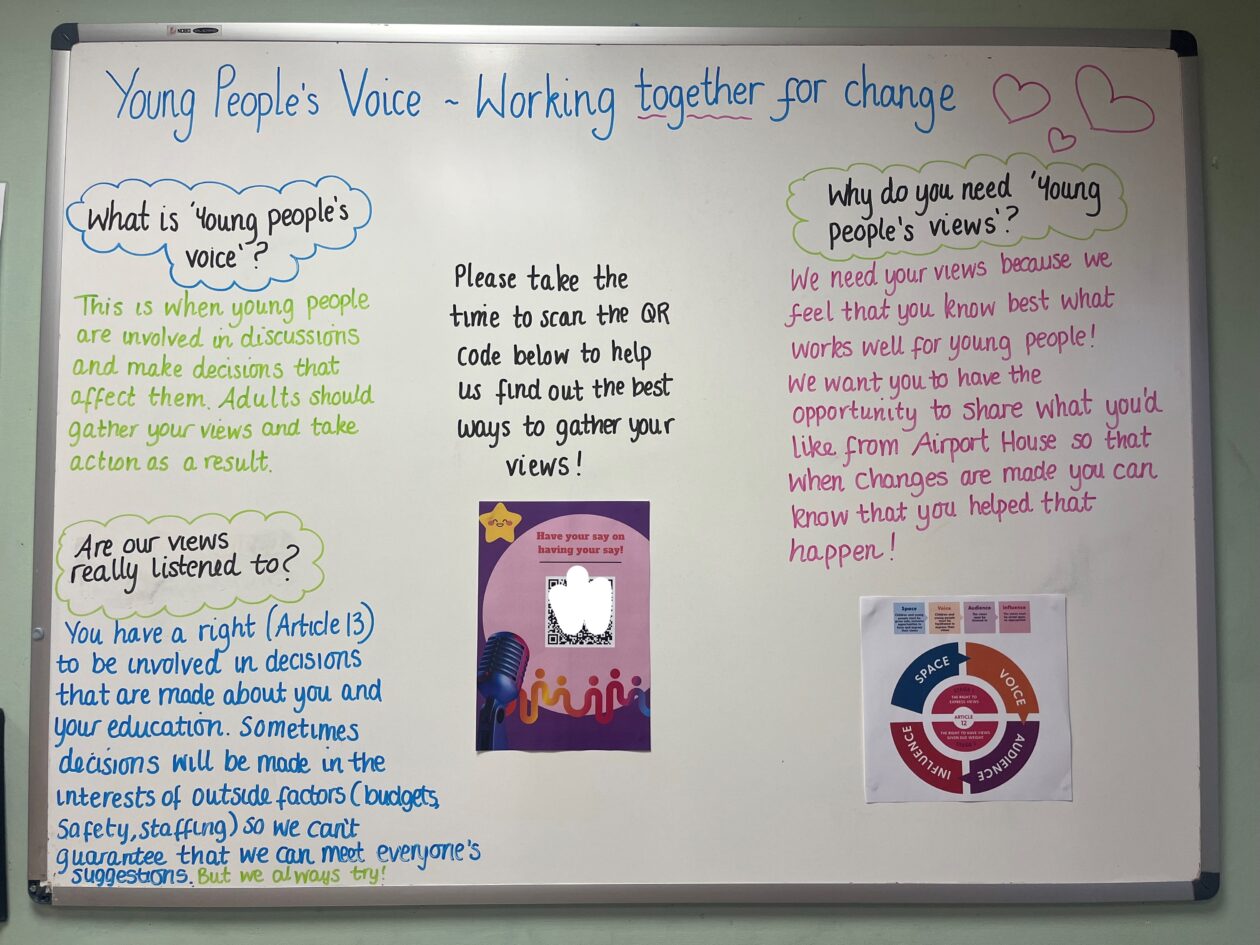 NOBO
Young People's Voice ~ Working together for change
What is 'Young people's
voice'?
This is when young people
are involved in discussions
and make decisions that
affect them. Adults should
gather your views and take
action as a result.
Are our views
really listened to?
You have a right (Article 13)
to be involved in decisions
that are made about you and
your education. Sometimes
decisions will be made in the
interests of outside factors (budgets,
safety, staffing) so we can't
guarantee that we can meet everyone's
suggestions. But we always try!
Please take the
time to scan the QR
code below to help
us find out the best
ways to gather your
views!
Have your say on
having your say!
Why do you need 'Young
people's views'?
We need your views because we
feel that you know best what
works well for young people!
We want you to have the
opportunity to share what you'd
like from Airport House so that
when changes are made you can
know that you helped that
happen!
Space
Voice
Audience
Influence
SPACE
VOICE
AUDIENCE
INFLUENCE
THE RIGHT TO
EXPRESS VIEWS
ARTICLE
12
THE RIGHT TO HAVE VIEWS
GIVEN DUE WEIGHT